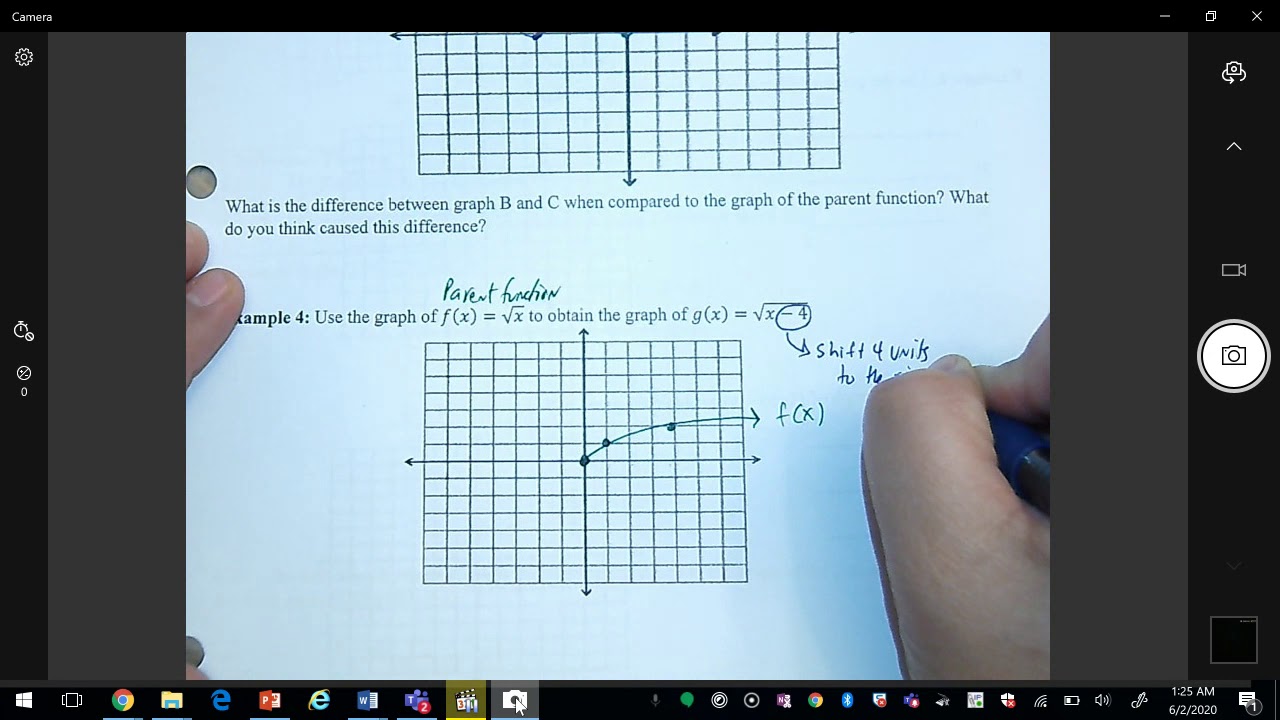 Camera
What is the difference between graph B and C when compared to the graph of the parent function? What
do you think caused this difference?
Parent function
xample 4: Use the graph of f(x) = √x to obtain the graph of g(x) = √x − 4
shift 4 units
to the
f(x)
0
1:25 AM
6/2/2020
2
1